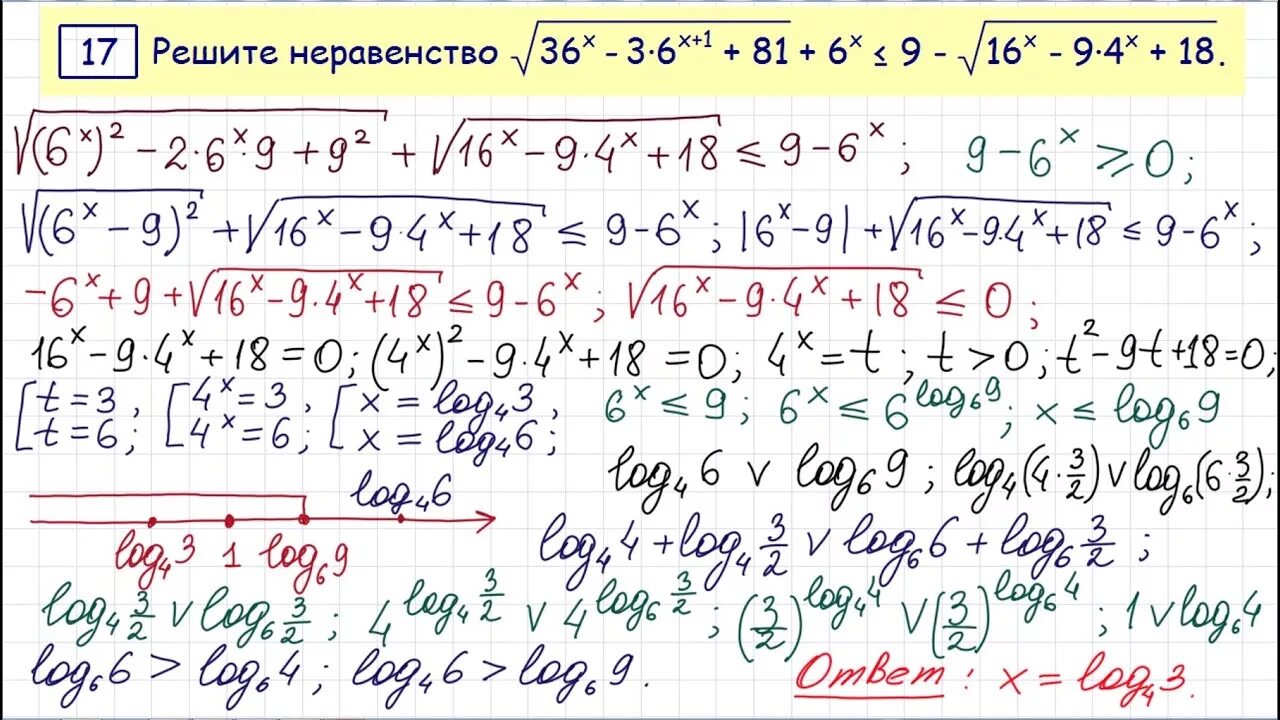 17 Решите неравенство √(36ˣ - 3·6ˣ⁺¹ + 81) + 6ˣ ≤ 9 - √(16ˣ - 9·4ˣ + 18).
√((6ˣ)² - 2·6ˣ·9 + 9²) + √(16ˣ - 9·4ˣ + 18) ≤ 9 - 6ˣ; 9 - 6ˣ ⩾ 0;
√((6ˣ - 9)²) + √(16ˣ - 9·4ˣ + 18) ≤ 9 - 6ˣ; |6ˣ - 9| + √(16ˣ - 9·4ˣ + 18) ≤ 9 - 6ˣ;
-6ˣ + 9 + √(16ˣ - 9·4ˣ + 18) ≤ 9 - 6ˣ; √(16ˣ - 9·4ˣ + 18) ≤ 0;
16ˣ - 9·4ˣ + 18 = 0; (4ˣ)² - 9·4ˣ + 18 = 0; 4ˣ = t; t > 0; t² - 9t + 18 = 0;
[t = 3, [4ˣ = 3, [x = log₄3, 6ˣ ≤ 9; 6ˣ ≤ 6^(log₆9); x ≤ log₆9
[t = 6; [4ˣ = 6; [x = log₄6;
log₄6 ∨ log₆9; log₄(4·3/2) ∨ log₆(6·3/2);
log₄6
log₄3 1 log₆9
log₄4 + log₄3/2 ∨ log₆6 + log₆3/2;
log₄3/2 ∨ log₆3/2; 4^(log₄3/2) ∨ 4^(log₆3/2); (3/2)^(log₄4) ∨ (3/2)^(log₆4); 1 ∨ log₆4
log₆6 > log₆4; log₄6 > log₆9. Ответ: x = log₄3.